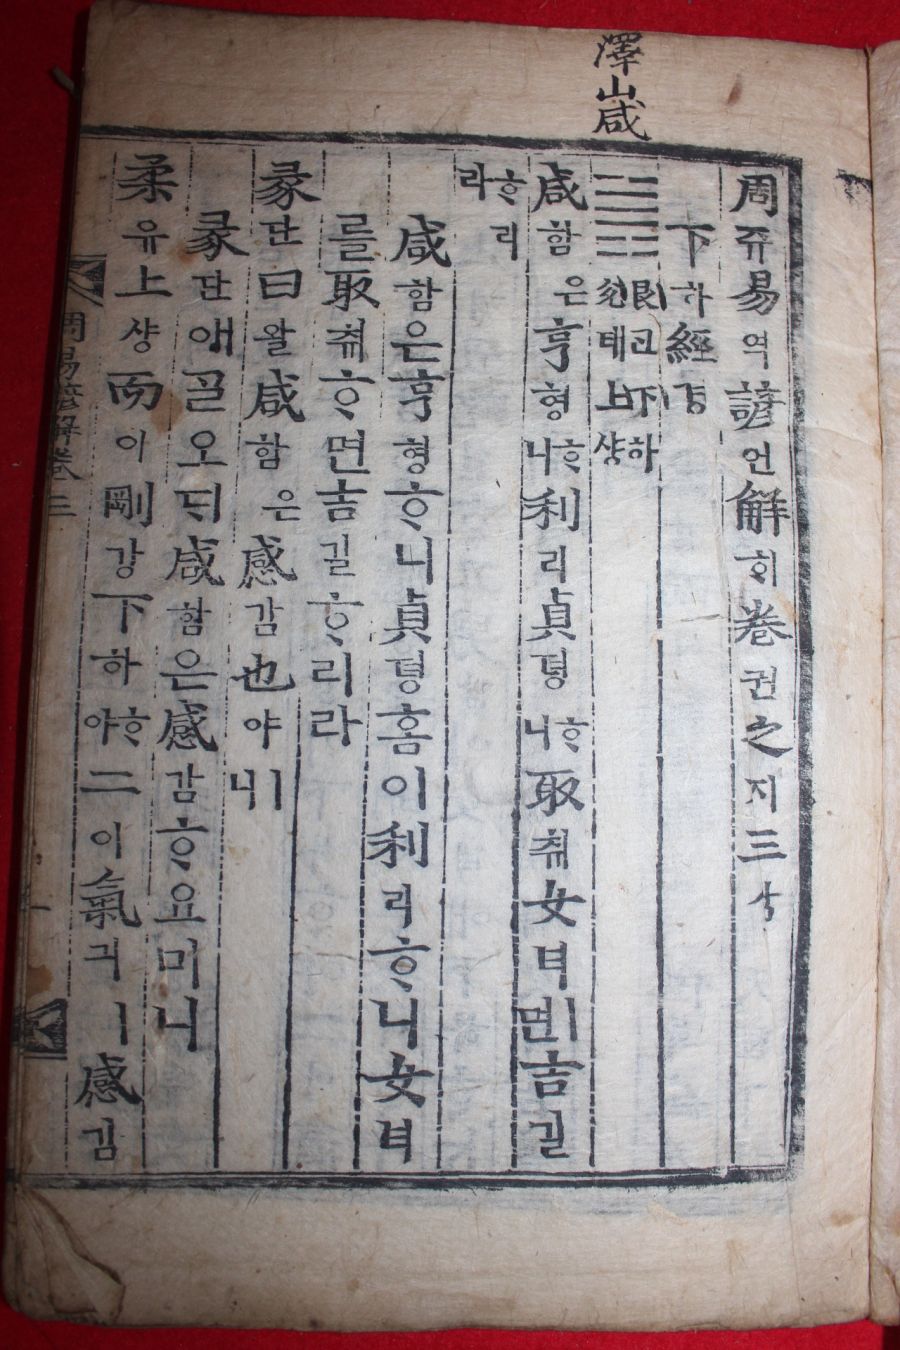 澤山咸
周쥬易역諺언解ᄒᆡ卷권之지三삼
下하經경
䷞艮간下하兌태上샹
咸함은亨형ᄒᆞ니利리貞뎡ᄒᆞ니取츄ㅣ女녀ㅣ면吉길
ᄒᆞ리라
咸함은亨형ᄒᆞ니貞뎡홈이利리ᄒᆞ니女녀
를取츄ㅣᄒᆞ면吉길ᄒᆞ리라
彖단曰왈咸함은感감也야ㅣ니
彖단애ᄀᆞᆯ오ᄃᆡ咸함은感감ᄒᆞ욤이니
柔유上샹而이剛강下하ᄒᆞ야二이氣긔ㅣ感감
周易諺解卷三